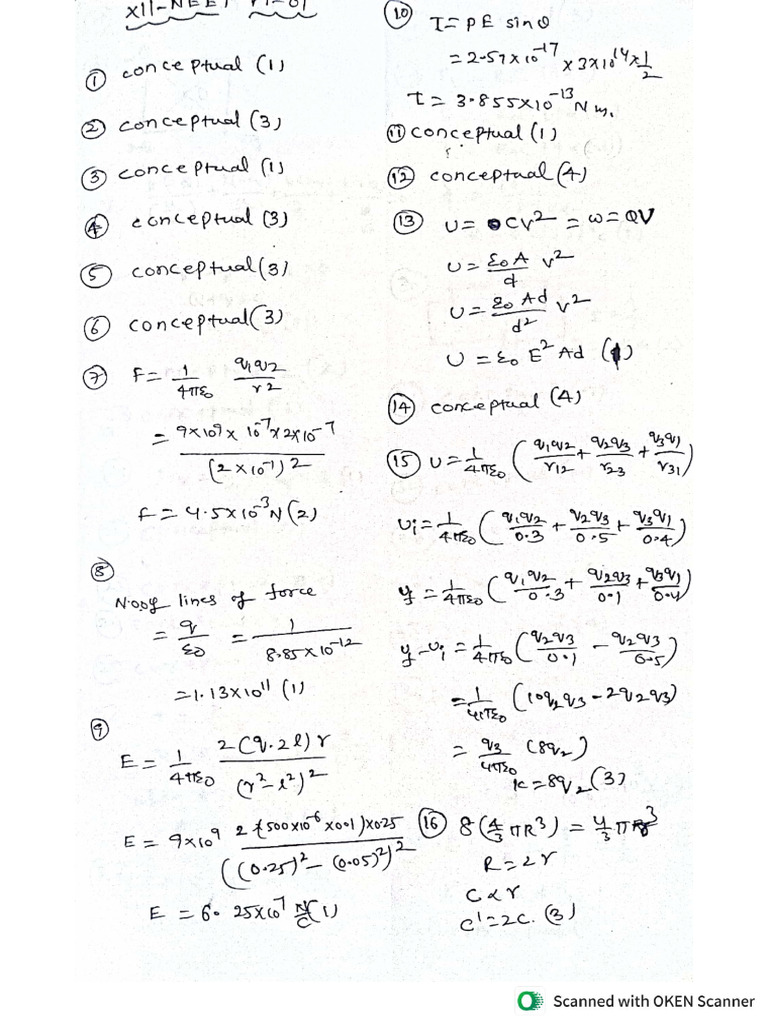 XII-NEET PT-01
① conceptual (1)
② conceptual (3)
③ conceptual (1)
④ conceptual (3)
⑤ conceptual (3)
⑥ conceptual (3)
⑦ F = 1/4πε₀ q₁q₂/r²
= 9×10⁹ × 10⁻⁷ × 2×10⁻⁷ / (2×10⁻¹)²
F = 4.5×10⁻³ N (2)
⑧
No of lines of force
= q/ε₀ = 1/8.85×10⁻¹²
= 1.13×10¹¹ (1)
⑨
E = 1/4πε₀ 2(q.2l)r/(r²-l²)²
E = 9×10⁹ 2(500×10⁻⁶×0.01)×0.25/((0.25)²-(0.05)²)²
E = 6.25×10⁷ N/C (1)
⑩ τ = PE sinθ
= 2.57×10⁻¹⁷ × 3×10¹⁴ × 1/2
τ = 3.855×10⁻¹³ N m.
⑪ conceptual (1)
⑫ conceptual (4)
⑬ U = CV² = W = QV
U = ε₀A/d V²
U = ε₀Ad/d² V²
U = ε₀E²Ad (1)
⑭ conceptual (4)
⑮ U = 1/4πε₀ (q₁q₂/r₁₂ + q₂q₃/r₂₃ + q₃q₁/r₃₁)
Ui = 1/4πε₀ (q₁q₂/0.3 + q₂q₃/0.5 + q₃q₁/0.4)
Uf = 1/4πε₀ (q₁q₂/0.3 + q₂q₃/0.1 + q₃q₁/0.4)
Uf - Ui = 1/4πε₀ (q₂q₃/0.1 - q₂q₃/0.5)
= 1/4πε₀ (10q₂q₃ - 2q₂q₃)
= q₃/4πε₀ (8q₂)
K = 8q₂ (3)
⑯ 8(4/3 πR³) = 4/3 πR³
R = 2r
C ∝ r
C' = 2C. (3)
Scanned with OKEN Scanner